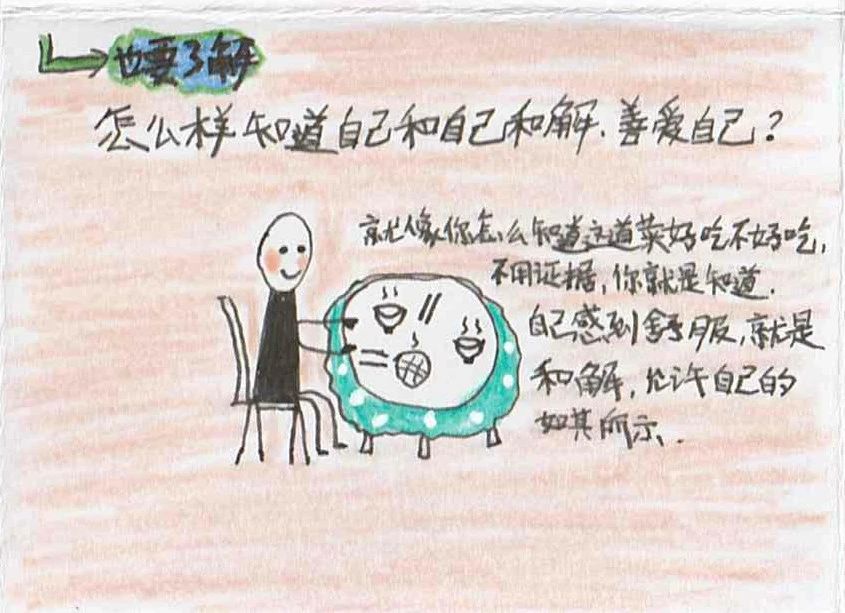 也要了解
怎么样知道自己和自己和解、善爱自己？
就像你怎么知道这道菜好吃不好吃，
不用证据，你就是知道.
自己感到舒服，就是
和解，允许自己的
如其所示、